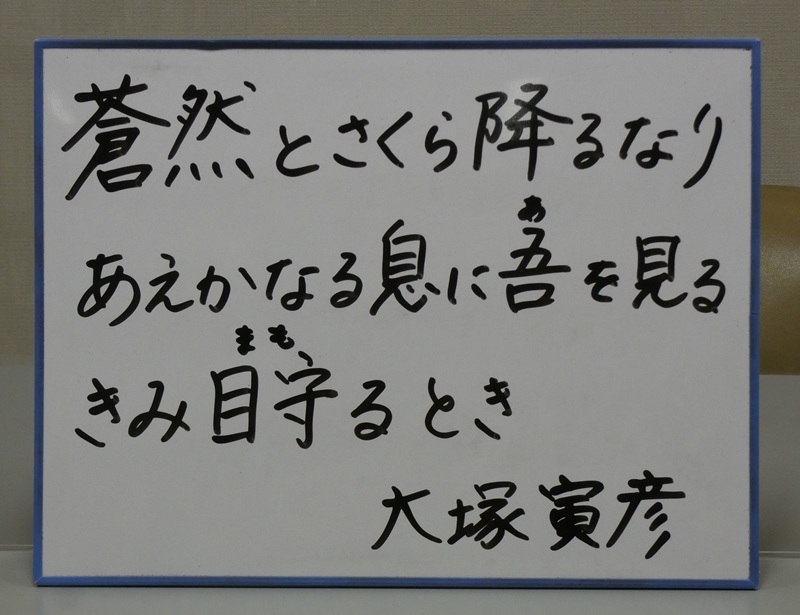 蒼然とさくら降るなり
あえかなる息に吾を見る
きみ目守るとき
大塚寅彦
あ
まも